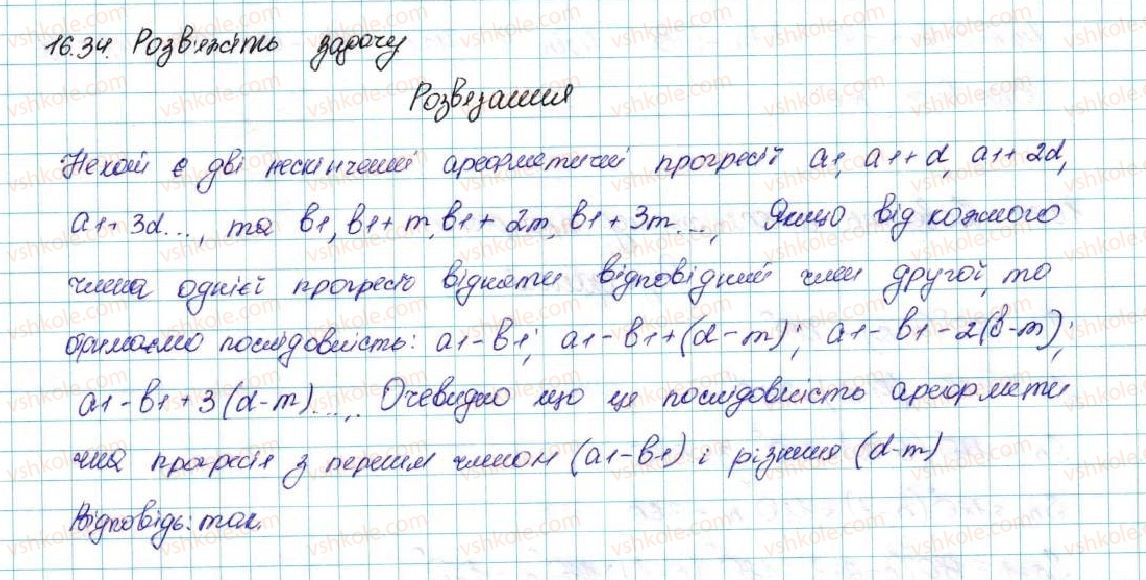 16.34. Розв'яжіть задачу
Розвязання
Нехай є дві нескінченні арефметичні прогресії a1, a1+d, a1+2d,
a1+3d..., та b1, b1+m, b1+2m, b1+3m..., Якщо від кожного
члена однієї прогресіє відняти відповідний член другої, то
отримаємо послідовність: a1-b1; a1-b1+(d-m); a1-b1-2(b-m);
a1-b1+3(d-m)...,. Очевидно що це послідовність арефмети
чна прогресія з першим членом (a1-b1) і різниця (d-m)
Відповідь: так.
vshkole.com